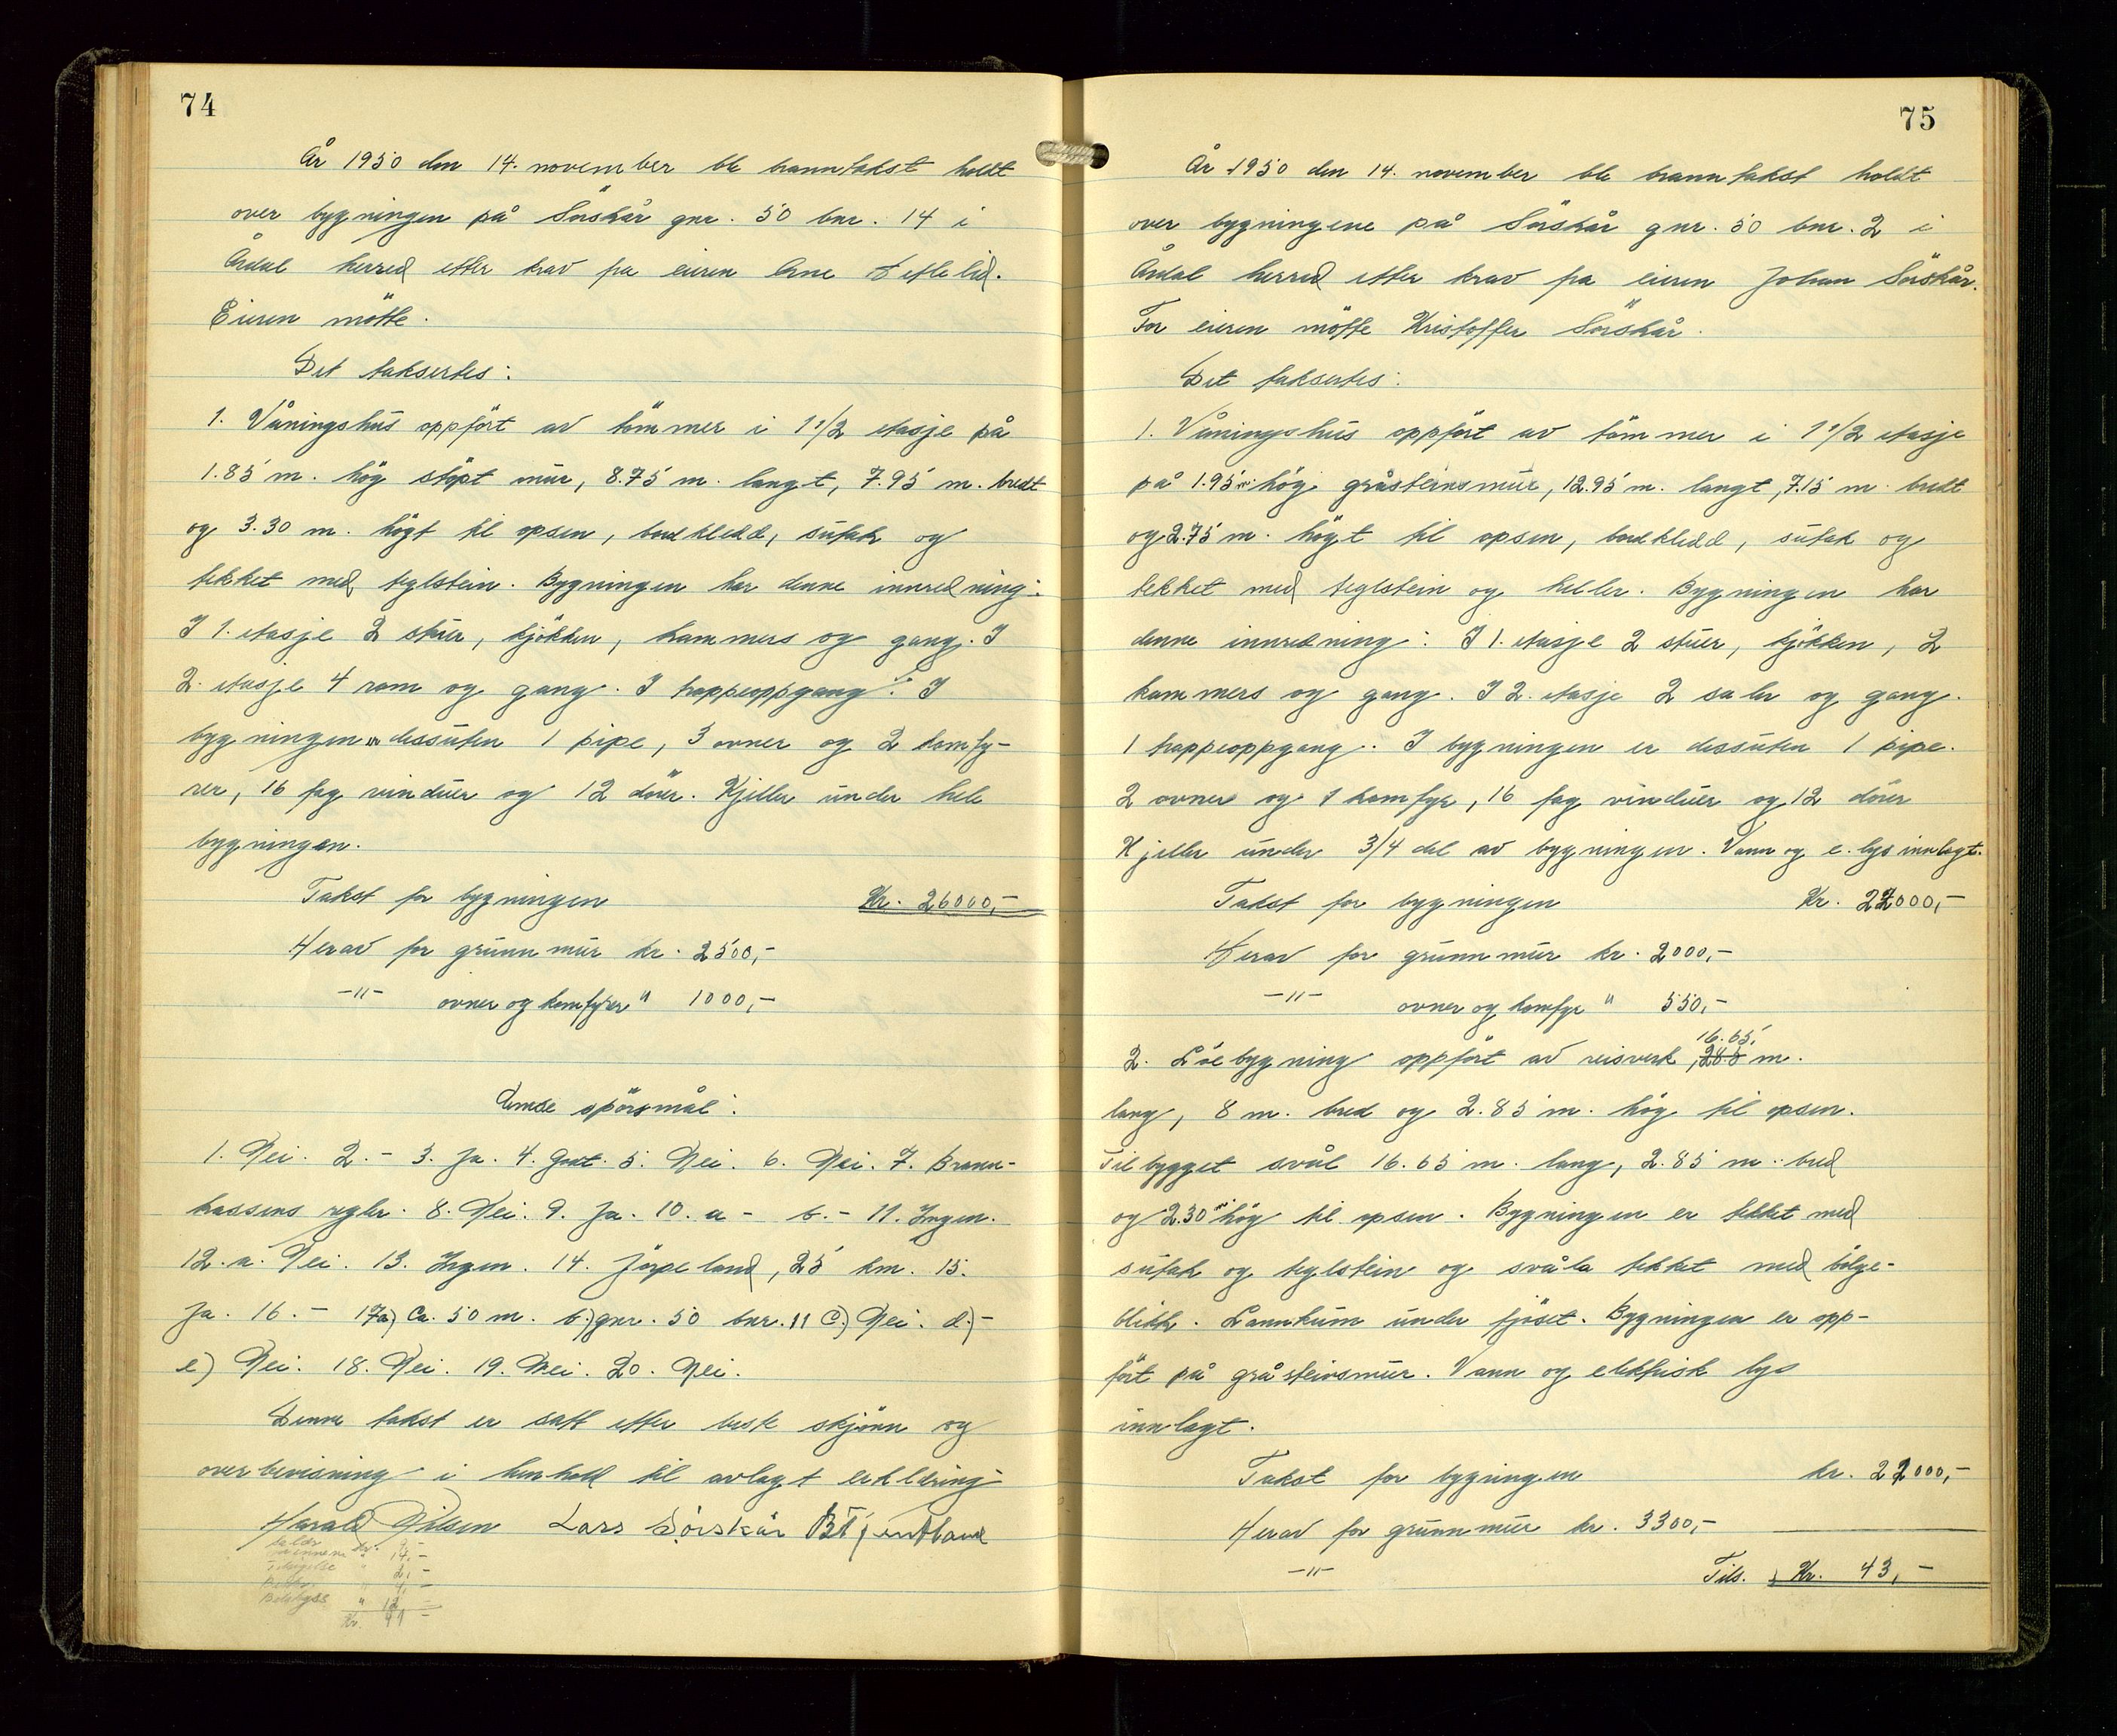 74
År 1950 den 14. november ble branntakst holdt
over bygningen på Sörskår gnr. 50 bnr. 14 i
Årdal herred etter krav fra eieren Arne Tetlelid.
Eieren mötte.
Det taksertes:
1. Våningshus oppfört av tömmer i 1 1/2 etasje på
1.85 m. hög stöpt mur, 8.75 m. langt, 7.95 m. bredt
og 3.30 m. högt til opsen, bordkledd, sutak og
tekket med teglstein. Bygningen har denne innredning:
I 1. etasje 2 stuer, kjökken, kammers og gang. I
2. etasje 4 rom og gang. 1 trappeoppgang. I
bygningen er dessuten 1 pipe, 3 ovner og 2 komfy-
rer, 16 fag vinduer og 12 dörer. Kjeller under hele
bygningen.
Takst for bygningen Kr. 26000,-
Herav for grunnmur kr. 2500,-
-"- ovner og komfyrer " 1000,-
Emde spörsmål:
1. Nei. 2. - 3. Ja. 4. Godt. 5. Nei. 6. Nei. 7. Brann-
kassens regler. 8. Nei. 9. Ja. 10. a - b. - 11. Ingen.
12. a. Nei. 13. Ingen. 14. Jörpeland, 25 km. 15.
Ja. 16. - 17a) Ca. 50 m. b.) gnr. 50 bnr. 11 c.) Nei. d.) -
e) Nei. 18. Nei. 19. Nei. 20. Nei.
Denne takst er satt etter beste skjönn og
overbevisning i henhold til avlagt erklæring
Harald Nilsen Lars Sörskår
Kr.
75
År 1950 den 14. november ble branntakst holdt
over bygningene på Sörskår gnr. 50 bnr. 2 i
Årdal herred etter krav fra eieren Johan Sörskår.
For eieren mötte Kristoffer Sörskår.
Det taksertes:
1. Våningshus oppfört av tömmer i 1 1/2 etasje
på 1.95 m. hög gråsteinsmur, 12.95 m. langt, 7.15 m. bredt
og 2.75 m. högt til opsen, bordkledd, sutak og
tekket med teglstein og heller. Bygningen har
denne innredning: I 1. etasje 2 stuer, kjökken, 2
kammers og gang. I 2. etasje 2 saler og gang.
1 trappeoppgang. I bygningen er dessuten 1 pipe.
2 ovner og 1 komfyr, 16 fag vinduer og 12 dörer
Kjeller under 3/4 del av bygningen. Vann og e. lys innlagt.
Takst for bygningen Kr. 22000,-
Herav for grunnmur kr. 2000,-
-"- ovner og komfyr " 550,-
16.65
2. Löebygning oppfört av reisverk, 28.5 m.
lang, 8 m. bred og 2.85 m. hög til opsen.
Tilbygget svål 16.65 m. lang, 2.85 m. bred
og 2.30 m hög til opsen. Bygningen er tekket med
sutak og teglstein og svåla tekket med bölge-
blikk. Lannkum under fjöset. Bygningen er opp-
fört på gråsteinsmur. Vann og elektrisk lys
innlagt.
Takst for bygningen kr. 21000,-
Herav for grunnmur kr. 3300,-
-"- Tils. Kr. 43,-